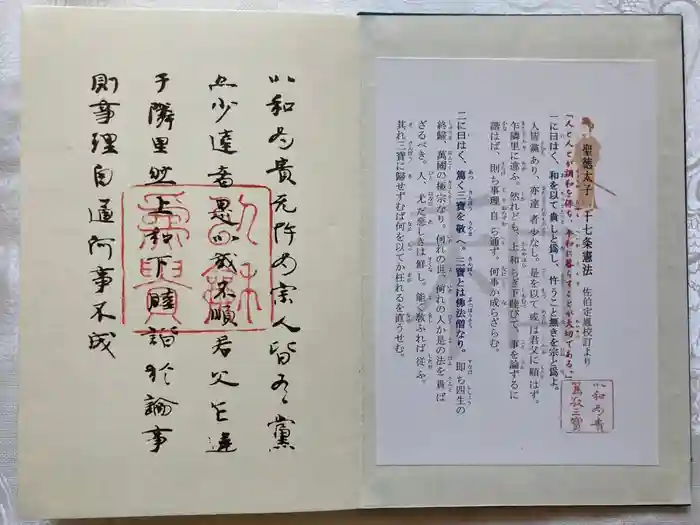 聖徳太子 十七条憲法 佐伯定胤校訂より
「人と人とが調和を保ち、平和に暮らすことが大切である。」
一に曰はく、和を以て貴しと爲し、忤うこと無きを宗と爲よ。
人皆黨あり、亦達者少なし。是を以て或は君父に順はず。
乍隣里に違ふ。然れども、上和らぎ下睦びて、事を論ずるに
諧はば、則ち事理自ら通ず。何事か成らざらむ。
二に曰はく、篤く三寶を敬へ。三寶とは佛法僧なり。即ち四生の
終歸、萬國の極宗なり。何れの世、何れの人か是の法を貴ば
ざるべき。人、尤だ悪しきは鮮し。能く教ふれば従ふ。
其れ三寶に歸せずむば何を以てか枉れるを直うせむ。
以和為貴
篤敬三寶
以和為貴無忤為宗人皆有黨
亦少達者是以或不順君父乍違
于隣里然上和下睦諧於論事
則事理自通何事不成